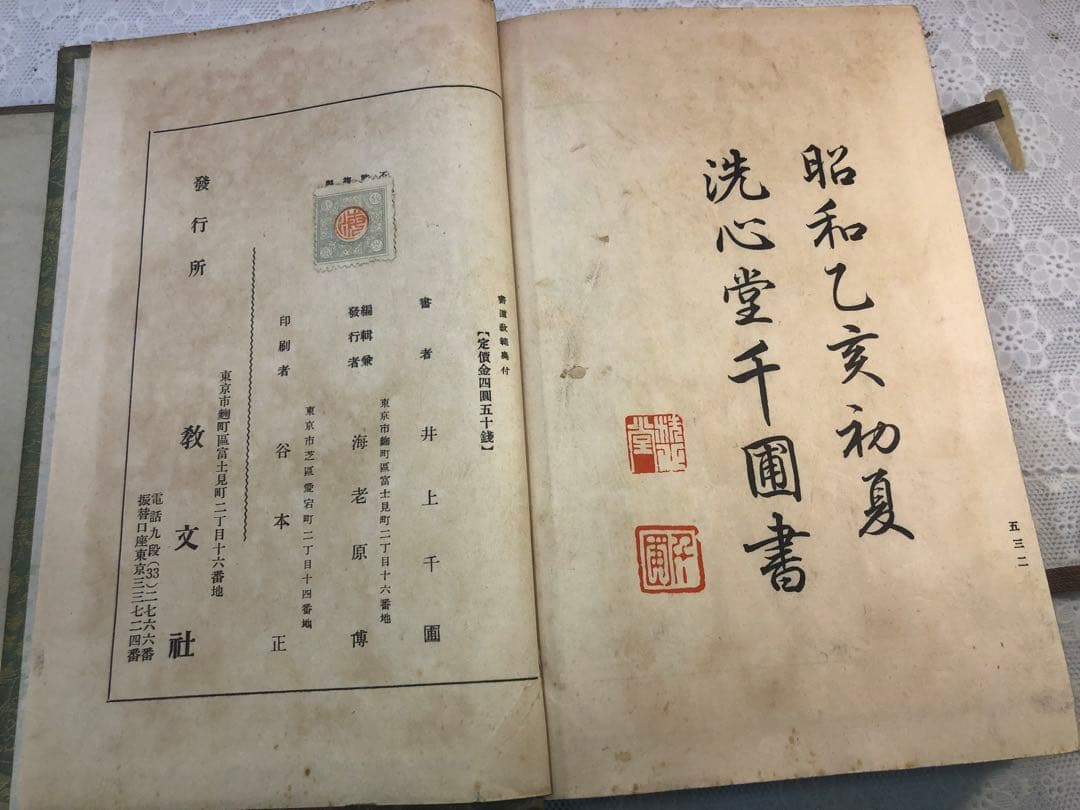 昭和乙亥初夏
洗心堂千圃書
五三二
書道教範奥付
【定價金四圓五十錢】
書者 井上千圃
東京市麹町區富士見町二丁目十六番地
編輯兼發行者 海老原傳
東京市芝區愛宕町二丁目十四番地
印刷者 谷本正
東京市麹町區富士見町二丁目十六番地
發行所 教文社
電話九段(33)二七六六番
振替口座東京三三七二四番